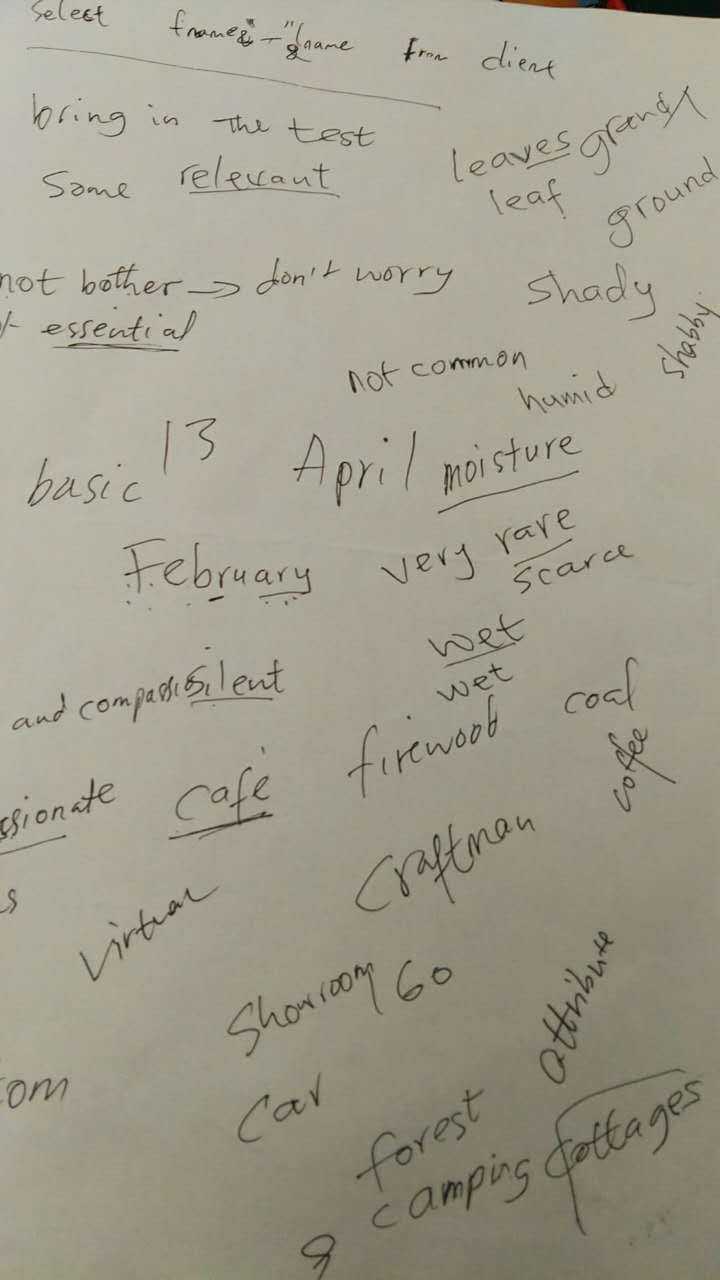 Select fname&"-"&lname from client
bring in the test
some relevant
leaves grandx
leaf ground
not bother → don't worry
shady
essential
shabby
not common
humid
basic 13 April moisture
February very rare
scarce
wet
wet
and compassi silent
firewood coal
ssionate café
coffee
s
Craftman
virtual
Showroom 60
attribute
om
Car
forest
camping cottages
&